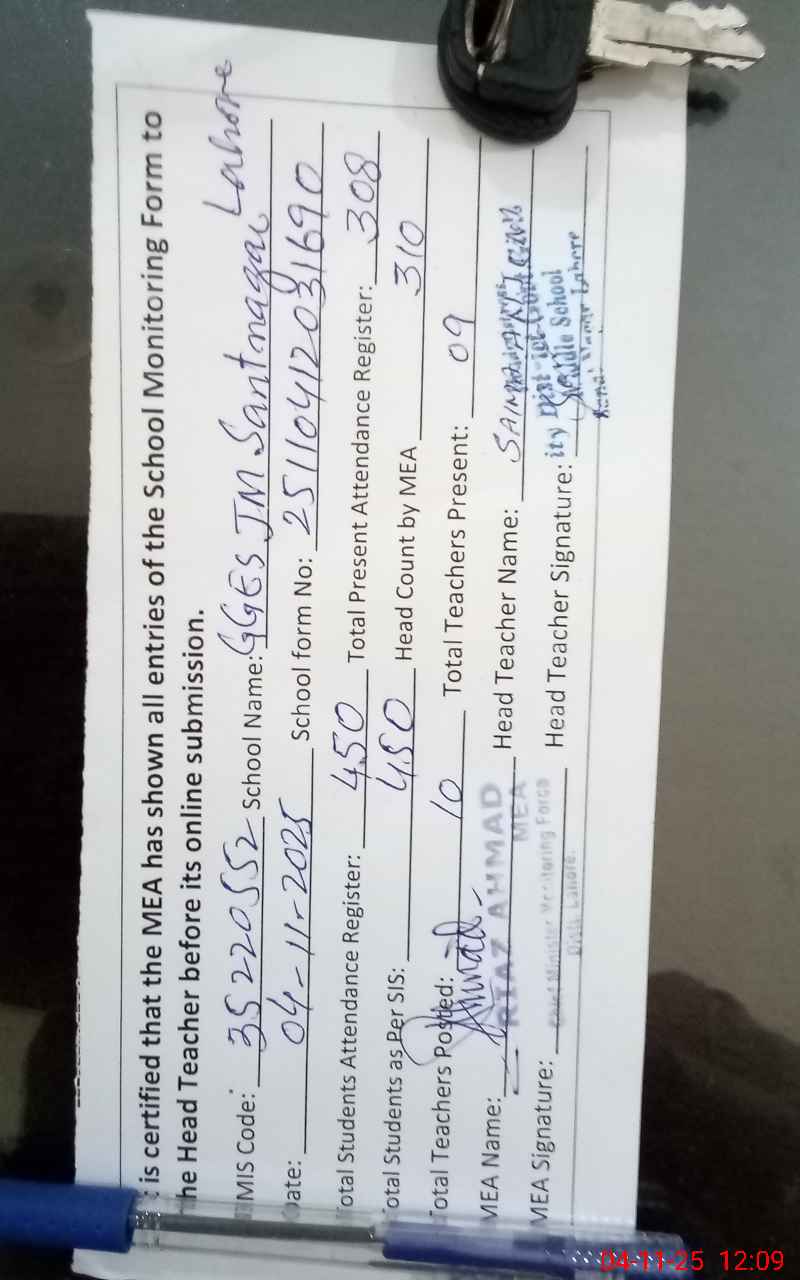 is certified that the MEA has shown all entries of the School Monitoring Form to
he Head Teacher before its online submission.
EMIS Code: 35220552 School Name: GGES JM Santnagar Lahore
Date: 04-11-2025 School form No: 25110412031690
otal Students Attendance Register: 450 Total Present Attendance Register: 308
otal Students as Per SIS: 450 Head Count by MEA 310
Total Teachers Posted: 10 Total Teachers Present: 09
MEA Name: RIAZ AHMAD Head Teacher Name:
MEA
MEA Signature: Head Teacher Signature:
Chief Minister Monitoring Force
Distt. Lahore.
ity Dist
Middle School
Lahore
04-11-25 12:09